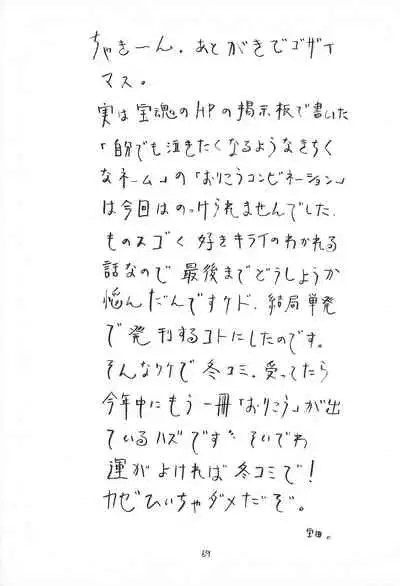 ちゃきーん。あとがきでゴザイ
マス。
実は宝魂のHPの掲示板で書いた
「自分でも泣きたくなるようなきちく
なネーム」の「おりこうコンビネーション」
は今回はのっけられませんでした。
ものスゴく好きキライのわかれる
話なので最後までどうしようか
悩んだんですケド、結局単発
で発刊するコトにしたのです。
そんなワケで冬コミ、受ってたら
今年中にもう一冊「おりこう」が出
ているハズですが そいでわ
運がよければ冬コミで!
カゼひいちゃダメだぞ。